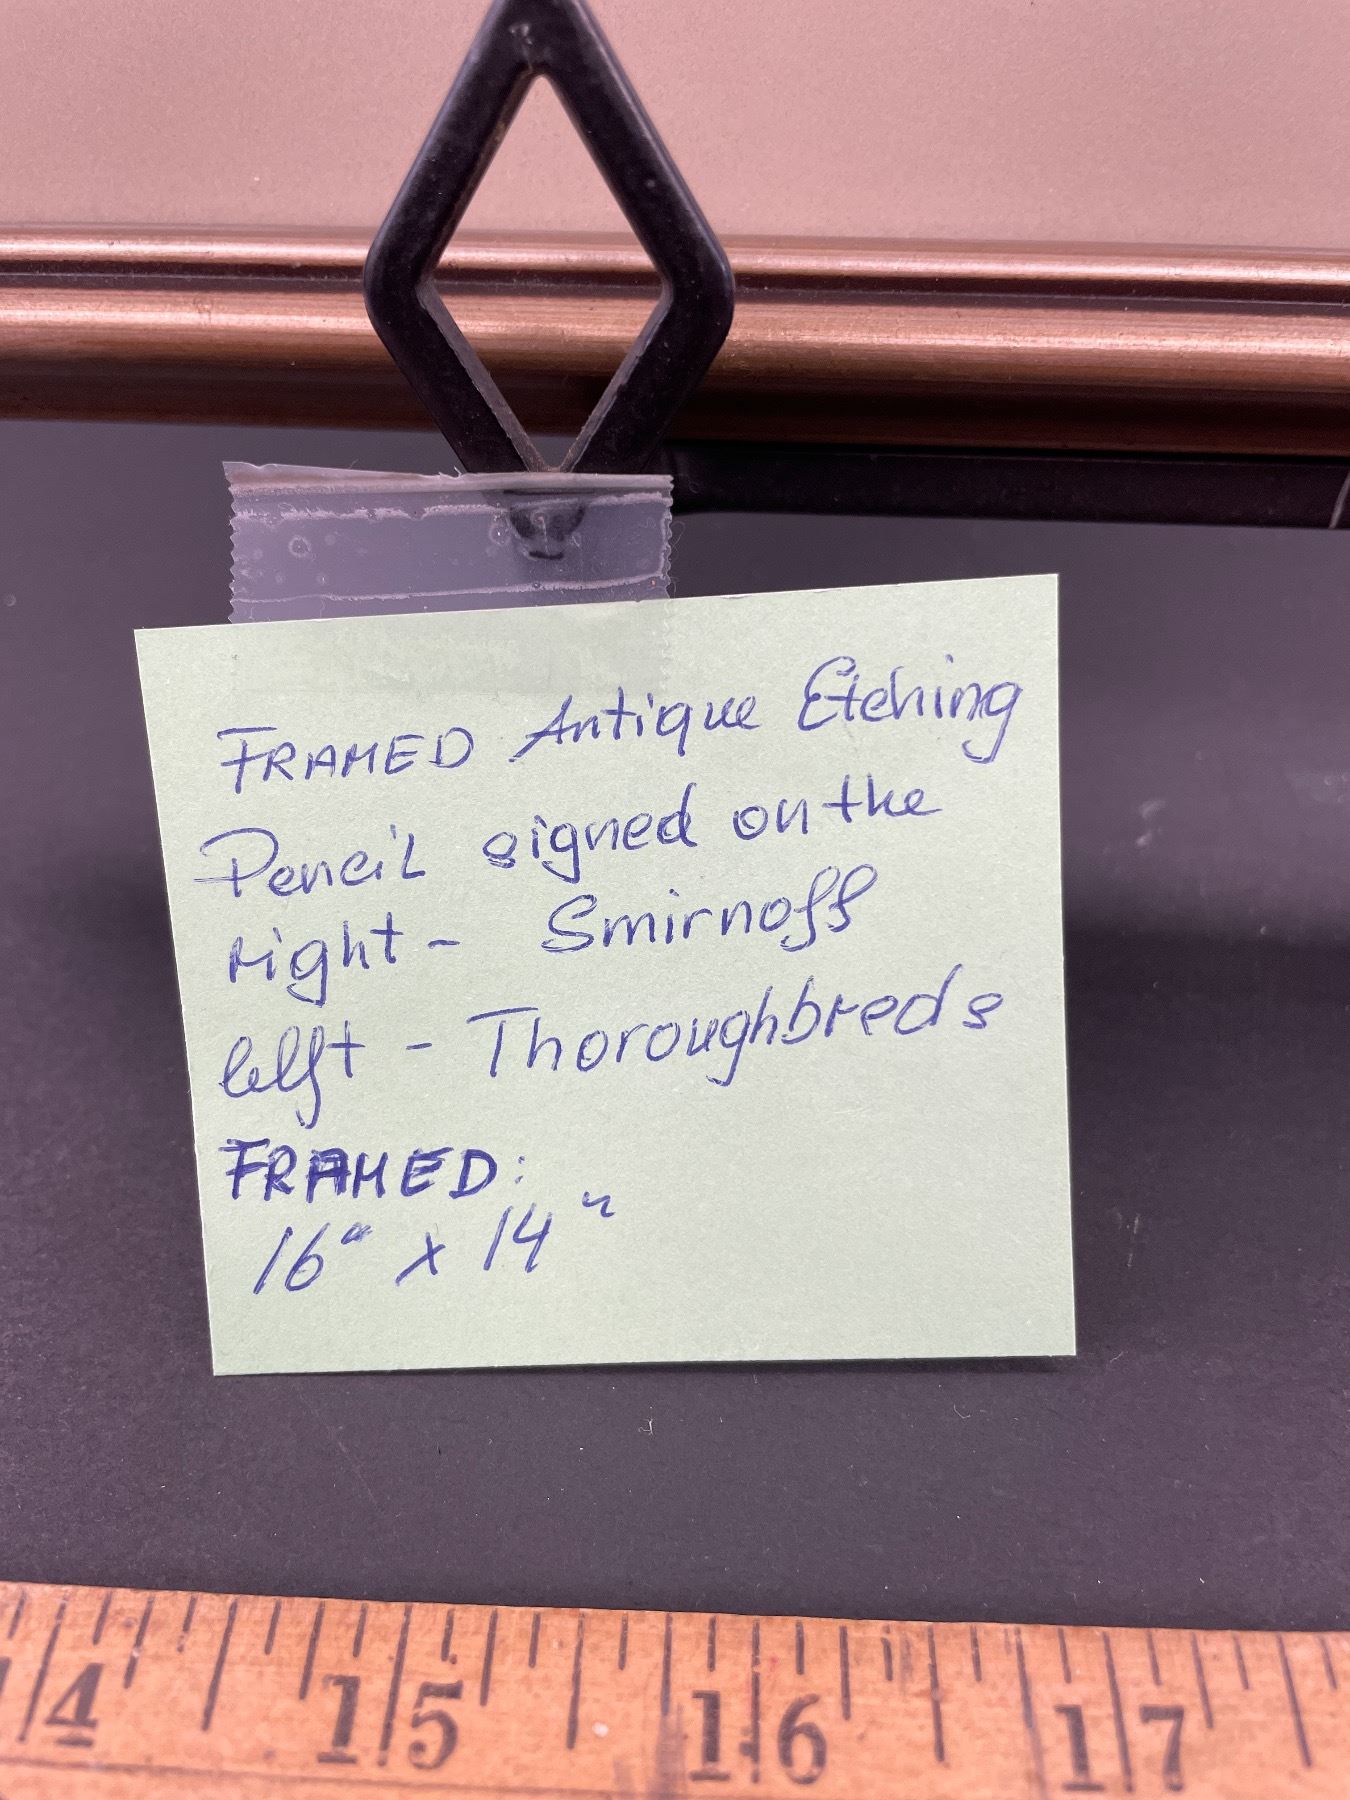 FRAMED Antique Etching
Pencil signed on the
right - Smirnoff
left - Thoroughbreds
FRAMED:
16" x 14"
4 15 16 17